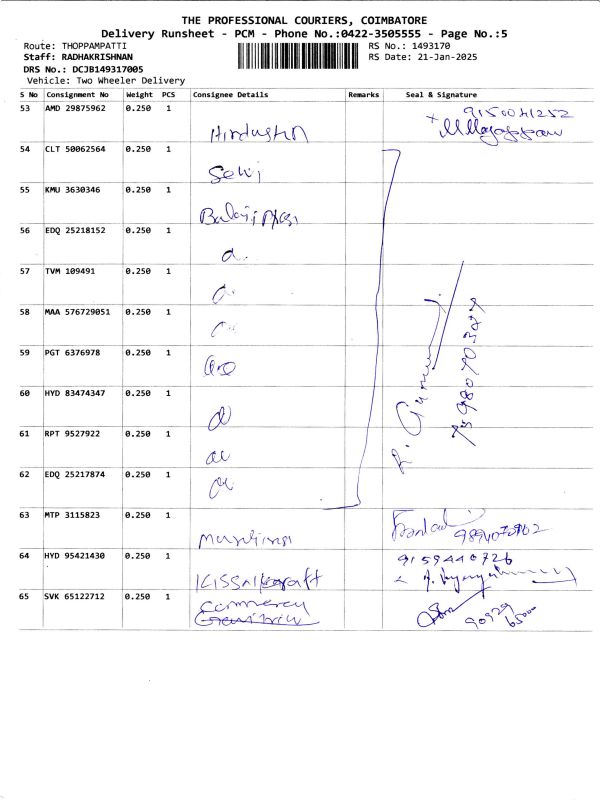 THE PROFESSIONAL COURIERS, COIMBATORE
Delivery Runsheet - PCM - Phone No.:0422-3505555 - Page No.:5
Route: THOPPAMPATTI
RS No.: 1493170
Staff: RADHAKRISHNAN
RS Date: 21-Jan-2025
DRS No.: DCJB149317005
Vehicle: Two Wheeler Delivery
S No Consignment No Weight PCS Consignee Details Remarks Seal & Signature
53 AMD 29875962 0.250 1 Hindustn 9150041252
54 CLT 50062564 0.250 1 Selvi
55 KMU 3630346 0.250 1 Balaji
56 EDQ 25218152 0.250 1
57 TVM 109491 0.250 1
58 MAA 576729051 0.250 1
59 PGT 6376978 0.250 1
60 HYD 83474347 0.250 1
61 RPT 9527922 0.250 1
62 EDQ 25217874 0.250 1
63 MTP 3115823 0.250 1
64 HYD 95421430 0.250 1 9159440726
65 SVK 65122712 0.250 1